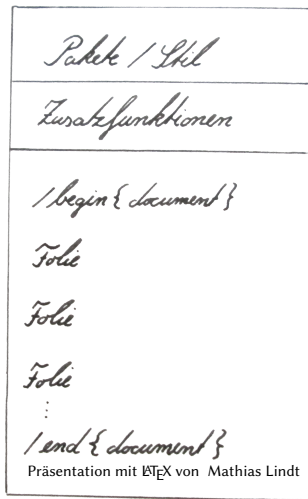 Pakete / Stil
Zusatzfunktionen
/begin{document}
Folie
Folie
Folie
⋮
/end{document}
Präsentation mit LATEX von Mathias Lindt